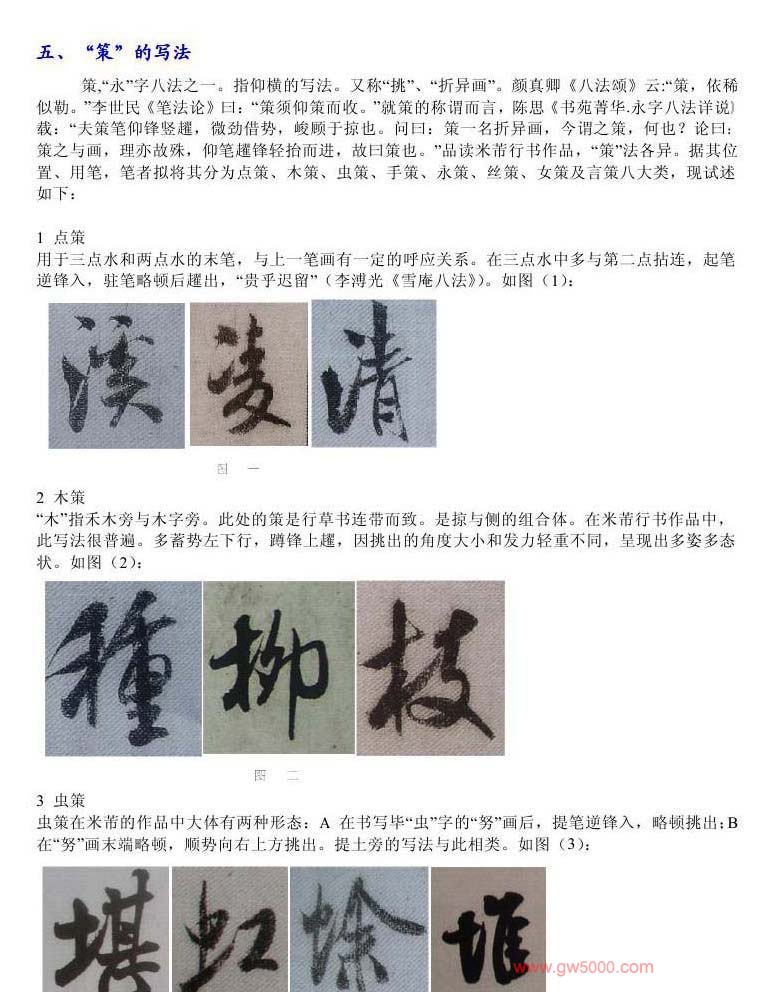 五、“策”的写法
策,“永”字八法之一。指仰横的写法。又称“挑”、“折异画”。颜真卿《八法颂》云:“策，依稀
似勒。”李世民《笔法论》曰：“策须仰策而收。”就策的称谓而言，陈思《书苑菁华.永字八法详说》
载：“夫策笔仰锋竖趯，微劲借势，峻顾于掠也。问曰：策一名折异画，今谓之策，何也？论曰：
策之与画，理亦故殊，仰笔趯锋轻抬而进，故曰策也。”品读米芾行书作品，“策”法各异。据其位
置、用笔，笔者拟将其分为点策、木策、虫策、手策、永策、丝策、女策及言策八大类，现试述
如下：
1 点策
用于三点水和两点水的末笔，与上一笔画有一定的呼应关系。在三点水中多与第二点拈连，起笔
逆锋入，驻笔略顿后趯出，“贵乎迟留”（李溥光《雪庵八法》）。如图（1）：
溪 凌 清
图 一
2 木策
“木”指禾木旁与木字旁。此处的策是行草书连带而致。是掠与侧的组合体。在米芾行书作品中，
此写法很普遍。多蓄势左下行，蹲锋上趯，因挑出的角度大小和发力轻重不同，呈现出多姿多态
状。如图（2）：
種 柳 枝
图 二
3 虫策
虫策在米芾的作品中大体有两种形态：A 在书写毕“虫”字的“努”画后，提笔逆锋入，略顿挑出；B
在“努”画末端略顿，顺势向右上方挑出。提土旁的写法与此相类。如图（3）：
堪 虹 蜍 堆
www.gw5000.com